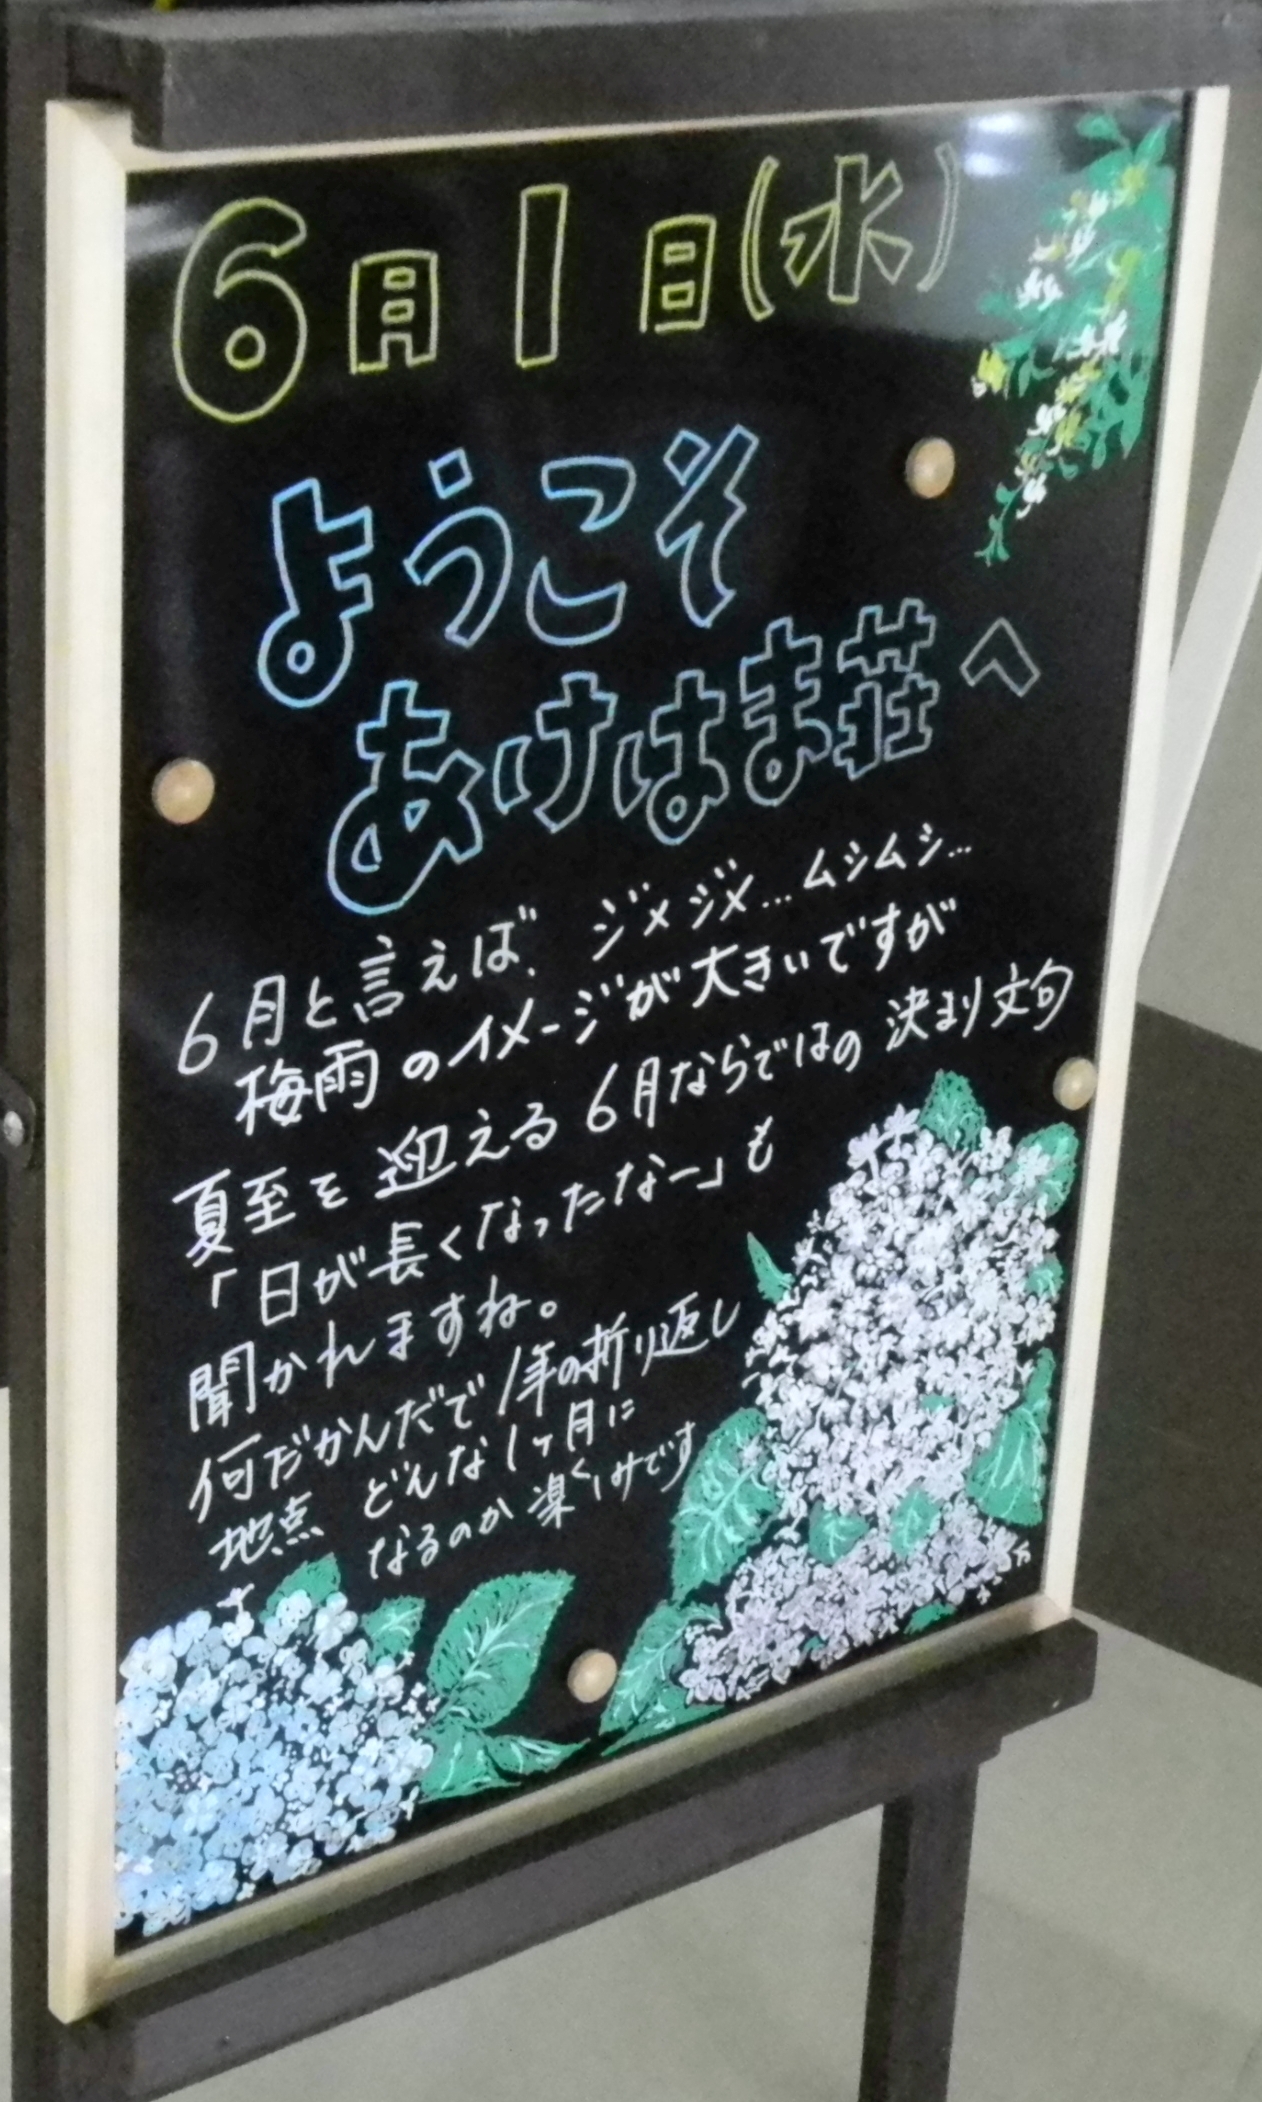 6月1日(水)
ようこそ
あけはま荘へ
6月と言えば、ジメジメ…ムシムシ…
梅雨のイメージが大きいですが
夏至を迎える6月ならではの決まり文句
「日が長くなったなー」も
聞かれますね。
何だかんだで1年の折り返し
地点 どんな1ヶ月に
なるのか楽しみです